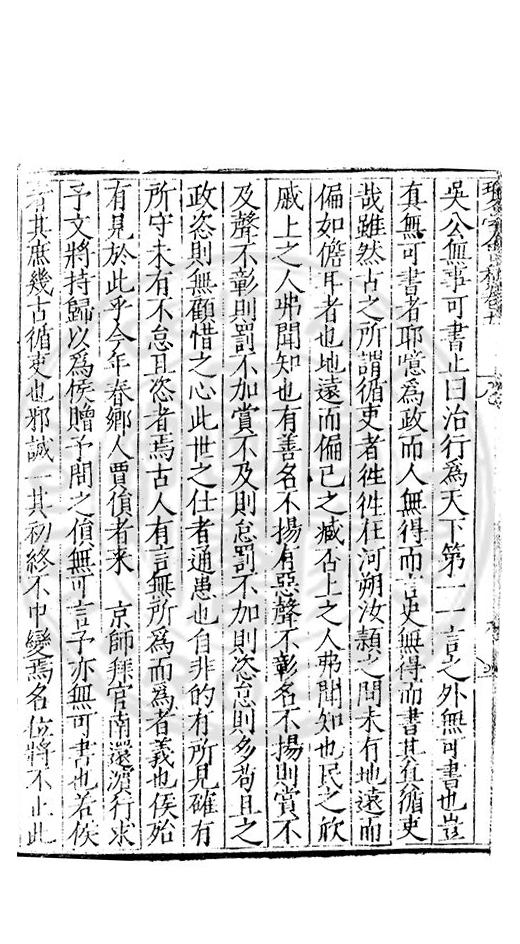 瓊臺會稿卷十
吳公無事可書止曰治行爲天下第一一言之外無可書也豈
真無可書者耶噫爲政而人無得而言史無得而書其真循吏
哉雖然古之所謂循吏者徃徃在河朔汝穎之間未有地遠而
偏如儋耳者也地遠而偏已之臧否上之人弗聞知也民之欣
戚上之人弗聞知也有善名不揚有惡聲不彰名不揚則賞不
及聲不彰則罰不加賞不及則怠罰不加則恣怠則多苟且之
政恣則無顧惜之心此世之仕者通患也自非的有所見確有
所守未有不怠且恣者焉古人有言無所爲而爲者義也侯殆
有見於此乎今年春鄉人賈僨者来 京師拜官南還濵行求
予文將持歸以爲侯贈予問之僨無可言予亦無可書也若侯
者其庶幾古循吏也邪誠一其初終不中變焉名位將不止此